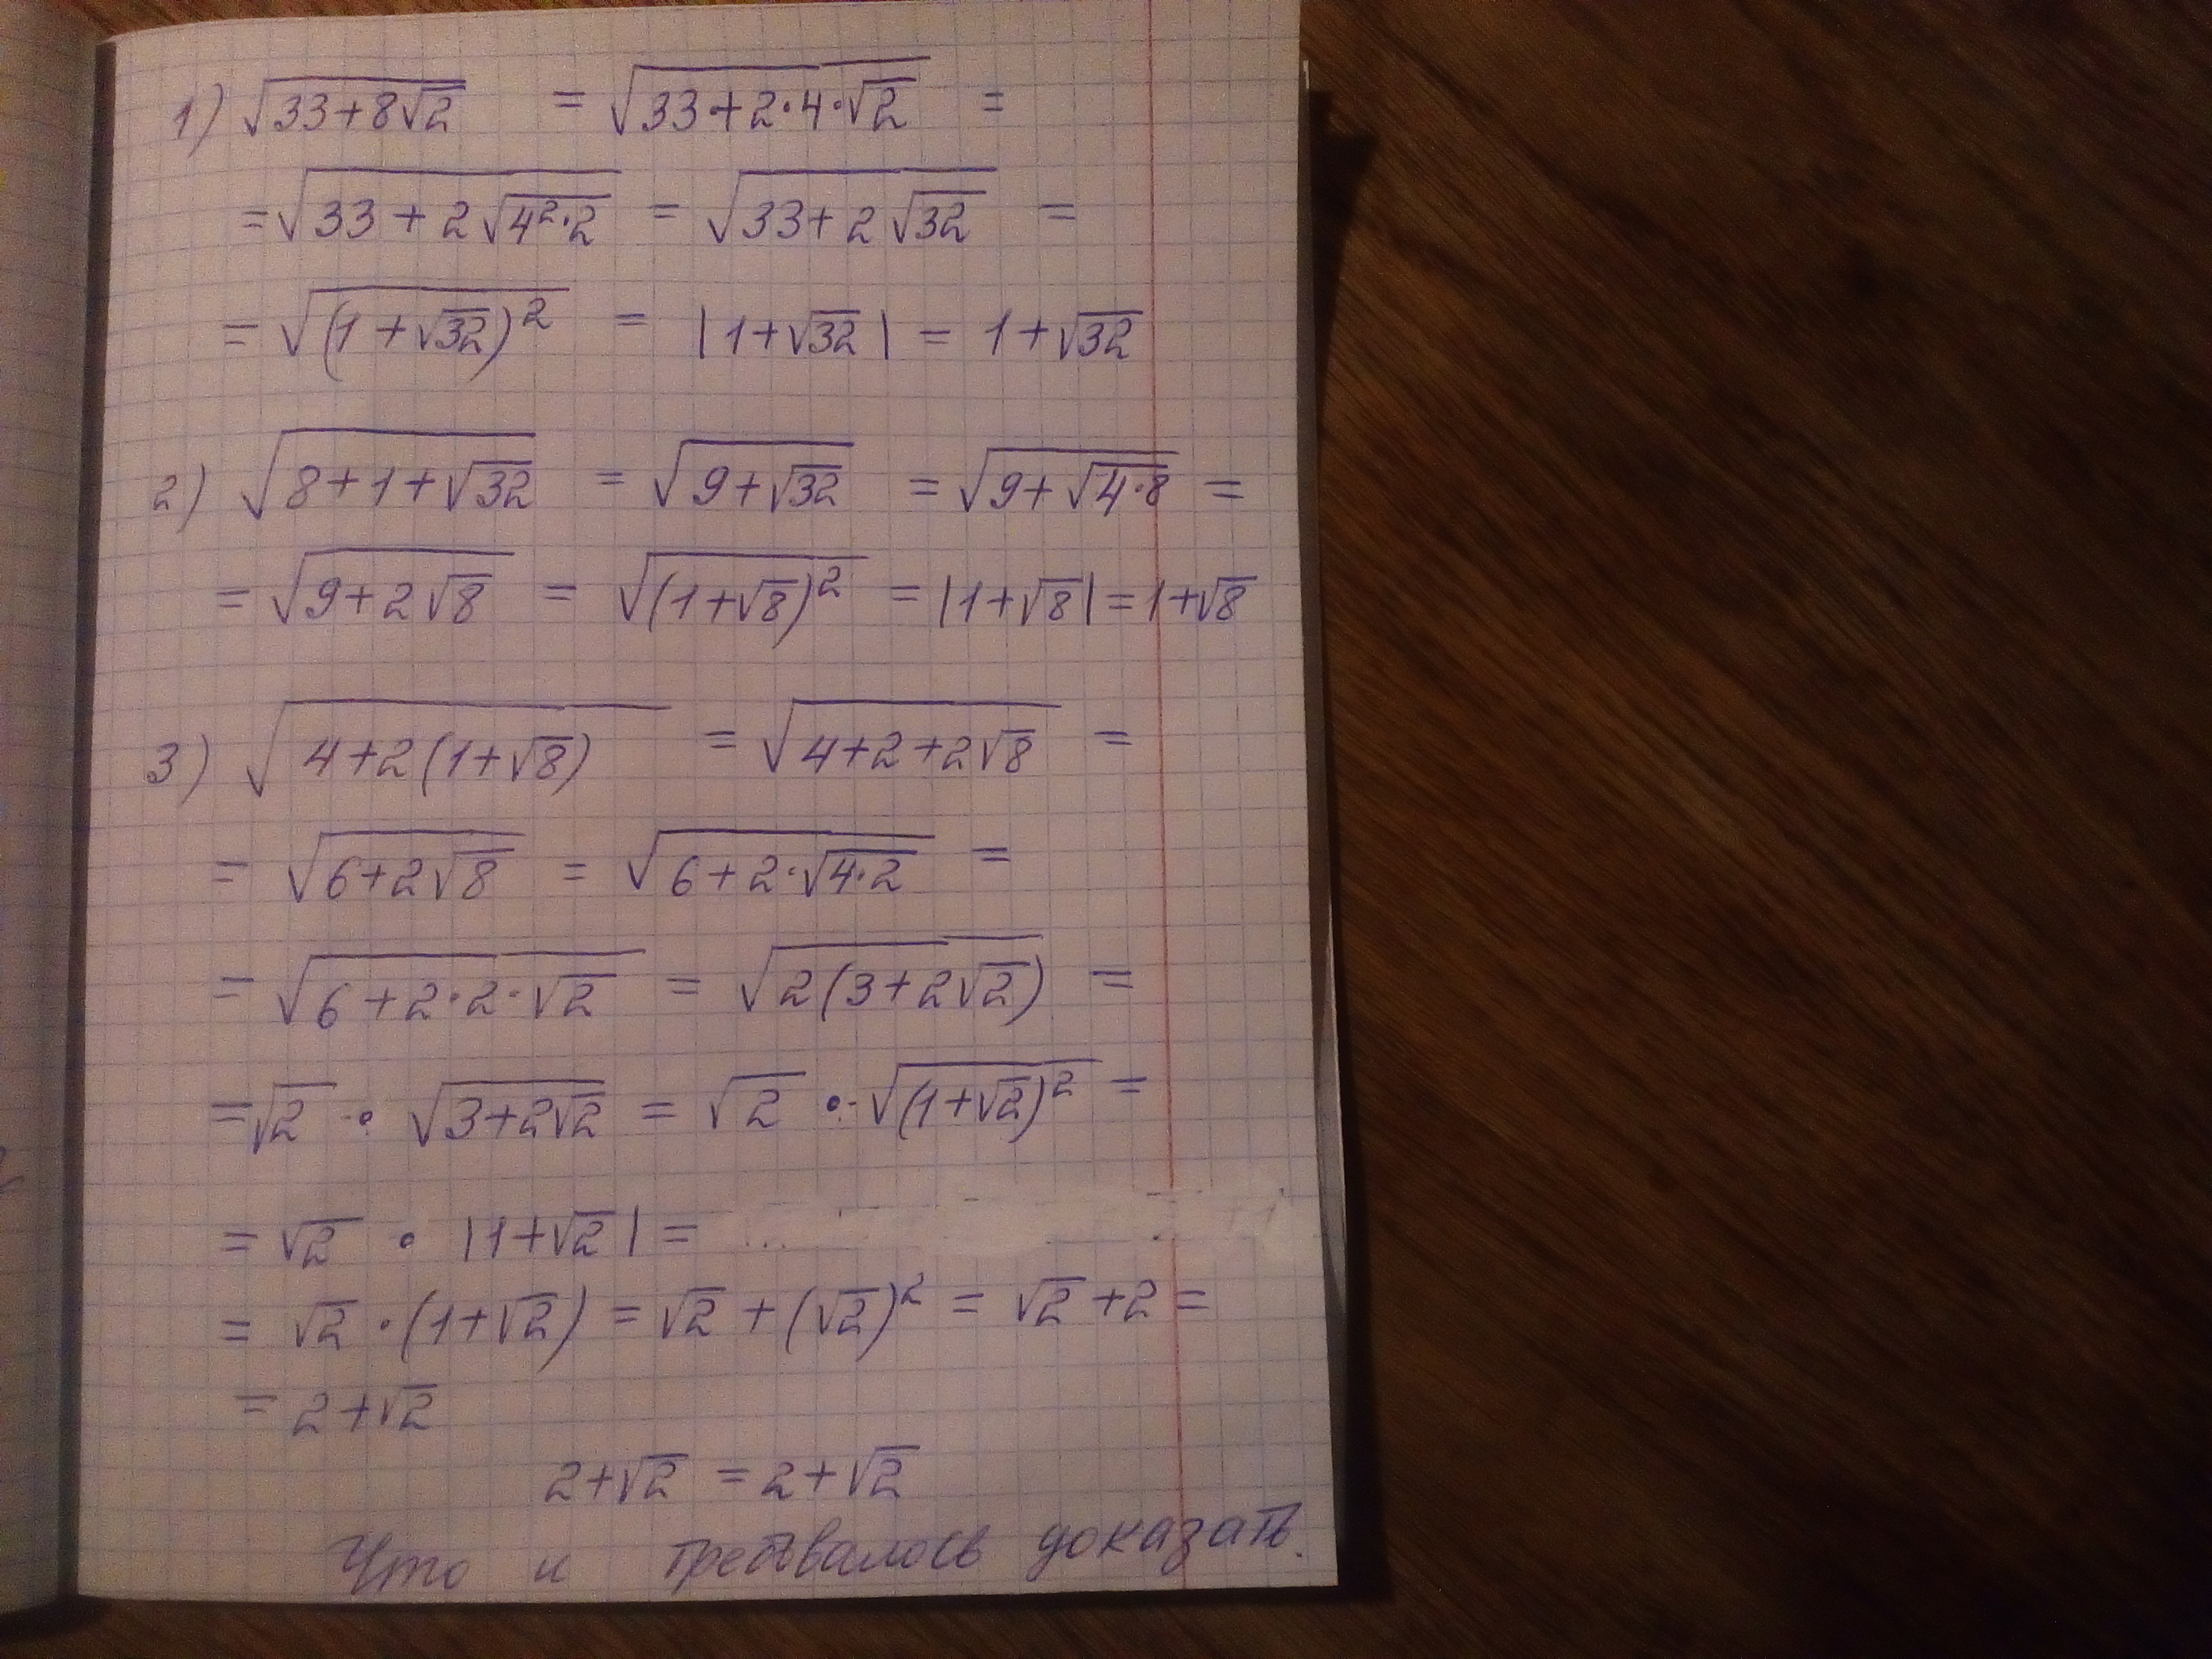 1) √(33+8√2) = √(33+2·4·√2) =
= √(33+2√(4²·2)) = √(33+2√32) =
= √((1+√32)²) = |1+√32| = 1+√32
2) √(8+1+√32) = √(9+√32) = √(9+√(4·8)) =
= √(9+2√8) = √((1+√8)²) = |1+√8| = 1+√8
3) √(4+2(1+√8)) = √(4+2+2√8) =
= √(6+2√8) = √(6+2·√(4·2)) =
= √(6+2·2·√2) = √(2(3+2√2)) =
= √2 · √(3+2√2) = √2 · √((1+√2)²) =
= √2 · |1+√2| =
= √2 · (1+√2) = √2 + (√2)² = √2 + 2 =
= 2+√2
2+√2 = 2+√2
Что и требвалось доказать.